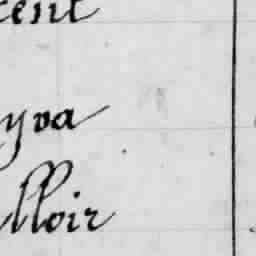 cent
yva
lloir